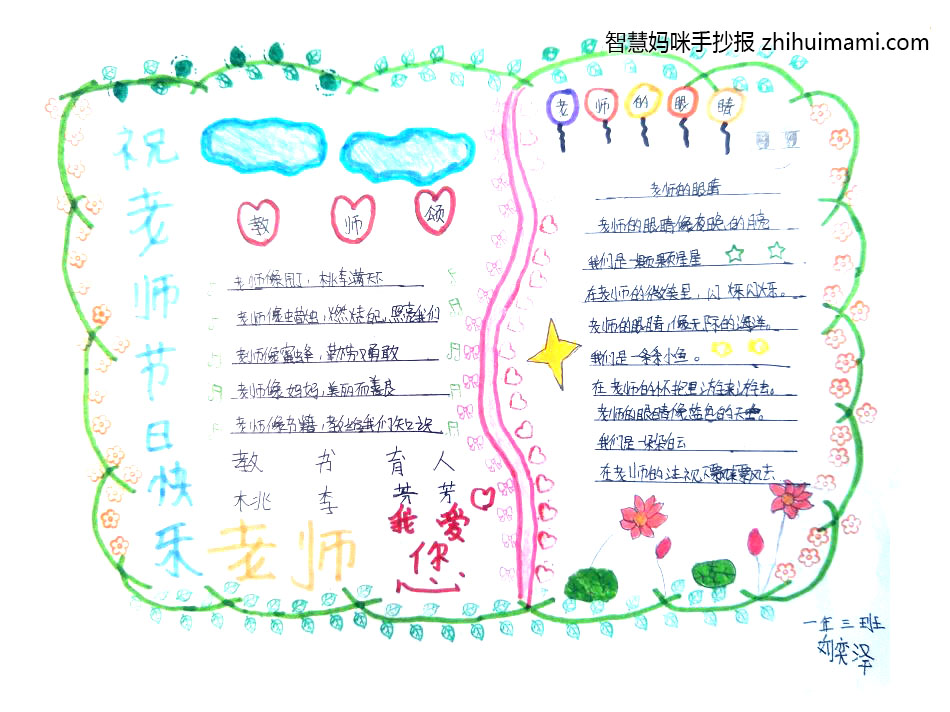 智慧妈咪手抄报 zhihuimami.com
祝老师节日快乐
教师颂
老师像园丁，桃李满天下
老师像蜡烛，燃烧自己，照亮我们
老师像蜜蜂，勤劳又勇敢
老师像妈妈，美丽而善良
老师像书籍，教给我们知识
教书育人
桃李芬芳
老师
我爱
你
老师的眼睛
老师的眼睛
老师的眼睛像夜晚的月亮
我们是一颗颗星星
在老师的微笑里，闪烁闪烁。
老师的眼睛，像无际的海洋。
我们是一条条小鱼。
在老师的怀抱里游来游去。
老师的眼睛像蓝色的天空。
我们是一朵朵白云
在老师的注视下飘来飘去
一年三班
刘奕泽